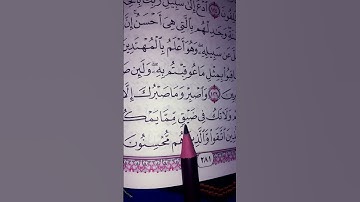 ٱدْعُ إِلَىٰ سَبِيلِ رَبِّكَ
وَجَٰدِلْهُم بِٱلَّتِى هِىَ أَحْسَنُ إِنَّ
عَن سَبِيلِهِۦ وَهُوَ أَعْلَمُ بِٱلْمُهْتَدِينَ
بِمِثْلِ مَا عُوقِبْتُم بِهِۦ وَلَئِن
١٢٦ وَٱصْبِرْ وَمَا صَبْرُكَ إِلَّا
وَلَا تَكُ فِى ضَيْقٍ مِّمَّا
ٱتَّقَوا۟ وَّٱلَّذِينَ هُم مُّحْسِنُونَ
٢٨١